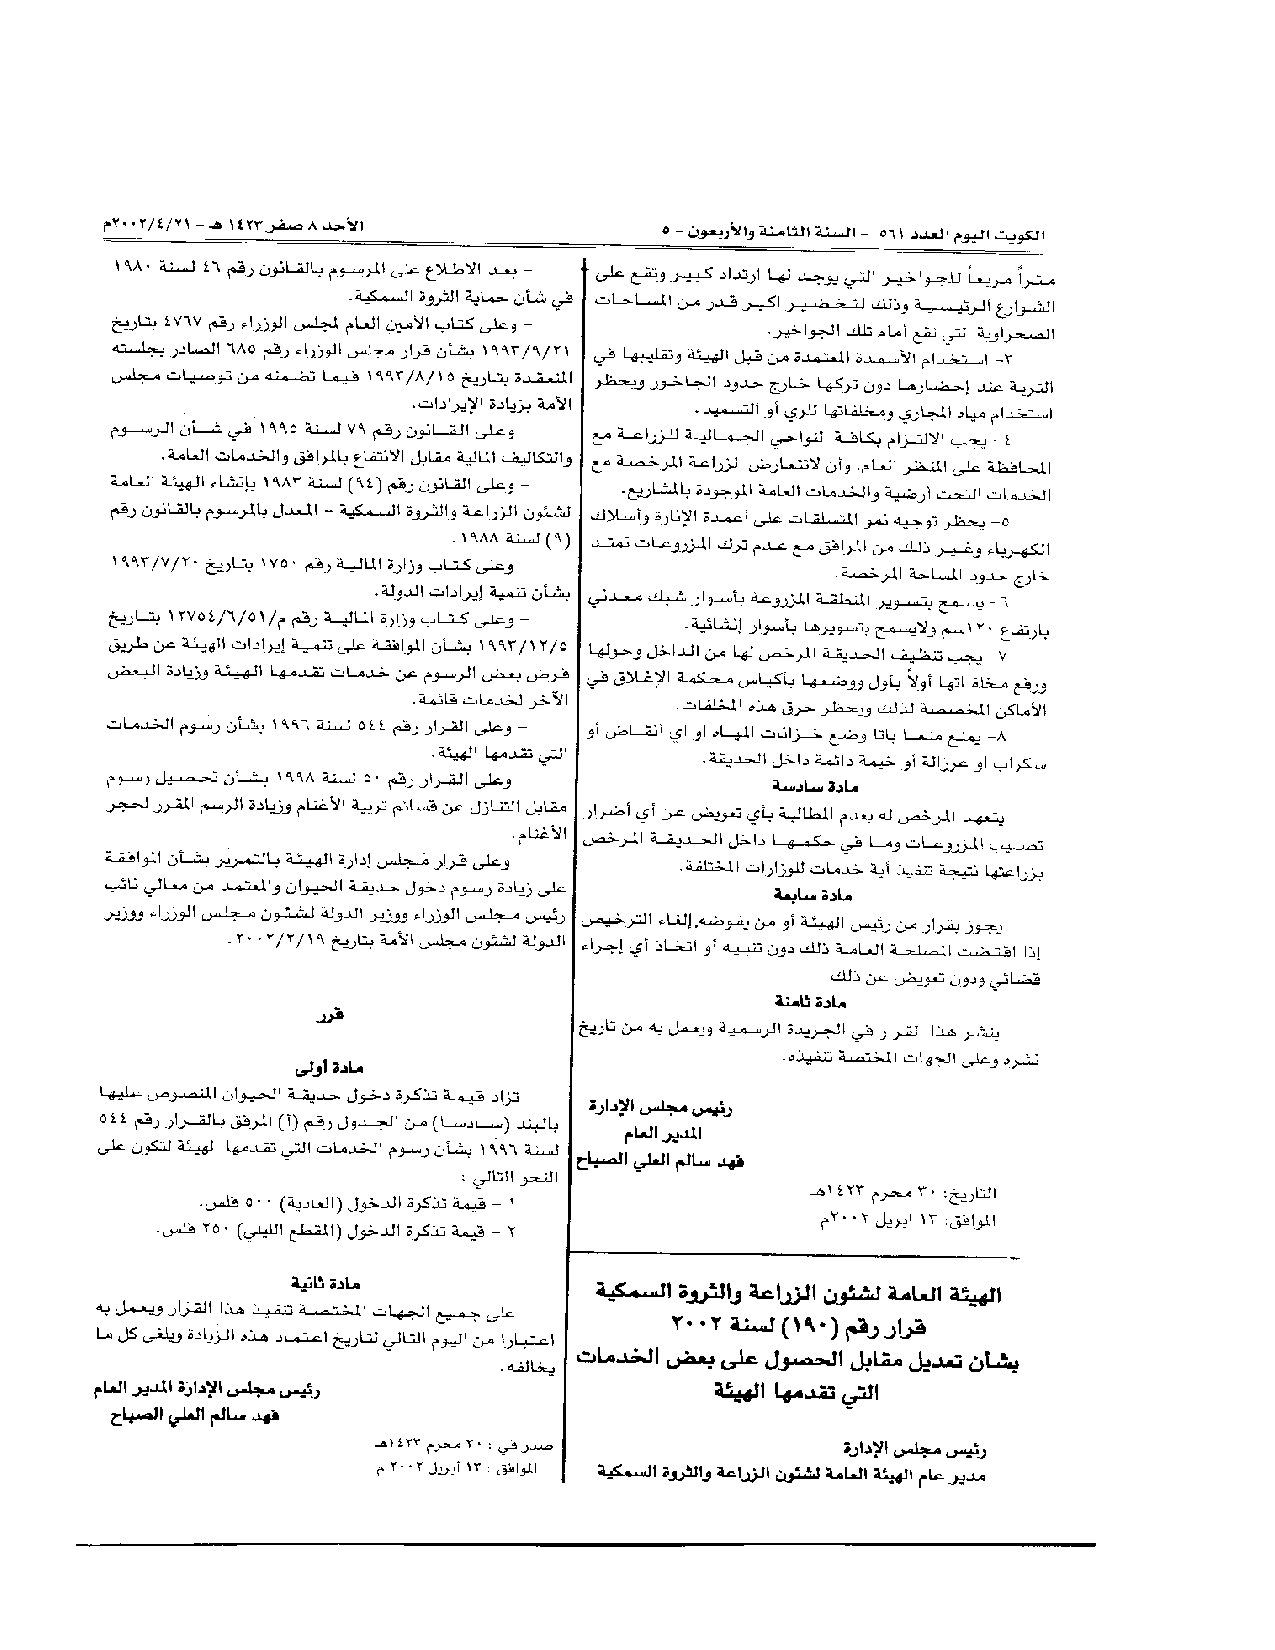 الكويت اليوم العدد ٥٦١ - السنة الثامنة والأربعون - ٥
الأحد ٨ صفر ١٤٢٣ هـ - ٢٠٠٢/٤/٢١م
متراً مربعاً للجواخير التي يوجد لها ارتداد كبير وتقع على
الشوارع الرئيسية وذلك لتخضير اكبر قدر من المساحات
الصحراوية التي تقع أمام تلك الجواخير.
٣- استخدام الأسمدة المعتمدة من قبل الهيئة وتقليبها في
التربة عند إحضارها دون تركها خارج حدود الجاخور ويحظر
استخدام مياه المجاري ومخلفاتها للري أو التسميد.
٤- يجب الالتزام بكافة النواحي الجمالية للزراعة مع
المحافظة على المنظر العام. وأن لاتتعارض الزراعة المرخصة مع
الخدمات التحت أرضية والخدمات العامة الموجودة بالمشاريع.
٥- يحظر توجيه نمو المتسلقات على أعمدة الإنارة وأسلاك
الكهرباء وغير ذلك من المرافق مع عدم ترك المزروعات تمتد
خارج حدود المساحة المرخصة.
٦- يسمح بتسوير المنطقة المزروعة بأسوار شبك معدني
بارتفع ١٢٠سم ولايسمح بتسويرها بأسوار إنشائية.
٧ يجب تنظيف الحديقة المرخص لها من الداخل وحولها
ورفع مخلفاتها أولاً بأول ووضعها بأكياس محكمة الإغلاق في
الأماكن المخصصة لذلك ويحظر حرق هذه المخلفات.
٨- يمنع منعا باتا وضع خزانات المياه او اي أنقاض أو
سكراب او عرزالة أو خيمة دائمة داخل الحديقة.
مادة سادسة
يتعهد المرخص له بعدم المطالبة بأي تعويض عن أي أضرار
تصيب المزروعات وما في حكمها داخل الحديقة المرخص
بزراعتها نتيجة تنفيذ أية خدمات للوزارات المختلفة.
مادة سابعة
يجوز بقرار من رئيس الهيئة أو من يفوضه إلغاء الترخيص
إذا اقتضت المصلحة العامة ذلك دون تنبيه أو اتخاذ أي إجراء
قضائي ودون تعويض عن ذلك
مادة ثامنة
ينشر هذا القرار في الجريدة الرسمية ويعمل به من تاريخ
نشره وعلى الجهات المختصة تنفيذه.
رئيس مجلس الإدارة
المدير العام
فهد سالم العلي الصباح
التاريخ: ٣٠ محرم ١٤٢٣هـ
الموافق: ١٣ ابريل ٢٠٠٢م
الهيئة العامة لشئون الزراعة والثروة السمكية
قرار رقم (١٩٠) لسنة ٢٠٠٢
بشأن تعديل مقابل الحصول على بعض الخدمات
التي تقدمها الهيئة
رئيس مجلس الإدارة
مدير عام الهيئة العامة لشئون الزراعة والثروة السمكية
- بعد الاطلاع على المرسوم بالقانون رقم ٤٦ لسنة ١٩٨٠
في شأن حماية الثروة السمكية.
- وعلى كتاب الأمين العام لمجلس الوزراء رقم ٤٧٦٧ بتاريخ
١٩٩٣/٩/٢١ بشأن قرار مجلس الوزراء رقم ٦٨٥ الصادر بجلسته
المنعقدة بتاريخ ١٩٩٣/٨/١٥ فيما تضمنه من توصيات مجلس
الأمة بزيادة الإيرادات.
وعلى القانون رقم ٧٩ لسنة ١٩٩٥ في شأن الرسوم
والتكاليف المالية مقابل الانتفاع بالمرافق والخدمات العامة.
- وعلى القانون رقم (٩٤) لسنة ١٩٨٣ بإنشاء الهيئة العامة
لشئون الزراعة والثروة السمكية - المعدل بالمرسوم بالقانون رقم
(٩) لسنة ١٩٨٨.
وعلى كتاب وزارة المالية رقم ١٧٥٠ بتاريخ ١٩٩٣/٧/٢٠
بشأن تنمية إيرادات الدولة.
- وعلى كتاب وزارة المالية رقم م/٥١/٦/١٢٧٥٤ بتاريخ
١٩٩٣/١٢/٥ بشأن الموافقة على تنمية إيرادات الهيئة عن طريق
فرض بعض الرسوم عن خدمات تقدمها الهيئة وزيادة البعض
الآخر لخدمات قائمة.
- وعلى القرار رقم ٥٤٤ لسنة ١٩٩٦ بشأن رسوم الخدمات
التي تقدمها الهيئة.
وعلى القرار رقم ٥٠ لسنة ١٩٩٨ بشأن تحصيل رسوم
مقابل التنازل عن قسائم تربية الأغنام وزيادة الرسم المقرر لحجر
الأغنام.
وعلى قرار مجلس إدارة الهيئة بالتمرير بشأن الموافقة
على زيادة رسوم دخول حديقة الحيوان والمعتمد من معالي نائب
رئيس مجلس الوزراء ووزير الدولة لشئون مجلس الوزراء ووزير
الدولة لشئون مجلس الأمة بتاريخ ٢٠٠٢/٢/١٩.
قرر
مادة أولى
تزاد قيمة تذكرة دخول حديقة الحيوان المنصوص عليها
بالبند (سادسا) من الجدول رقم (أ) المرفق بالقرار رقم ٥٤٤
لسنة ١٩٩٦ بشأن رسوم الخدمات التي تقدمها الهيئة لتكون على
النحو التالي :
١ - قيمة تذكرة الدخول (العادية) ٥٠٠ فلس.
٢ - قيمة تذكرة الدخول (المقطع الليلي) ٢٥٠ فلس.
مادة ثانية
على جميع الجهات المختصة تنفيذ هذا القرار ويعمل به
اعتبارا من اليوم التالي لتاريخ اعتماد هذه الزيادة ويلغى كل ما
يخالفه.
رئيس مجلس الإدارة المدير العام
فهد سالم العلي الصباح
صدر في : ٣٠ محرم ١٤٢٣هـ
الموافق : ١٣ أبريل ٢٠٠٢ م